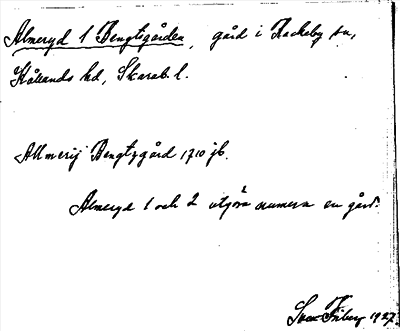 Almeryd 1 Bengtsgården, gård i Rackeby sn,
Kållands hd, Skarab. l.
Allmerÿ Bengtzgård 1710 jb.
Almeryd 1 och 2 utgöra numera en gård.
Sven Friberg 1927.